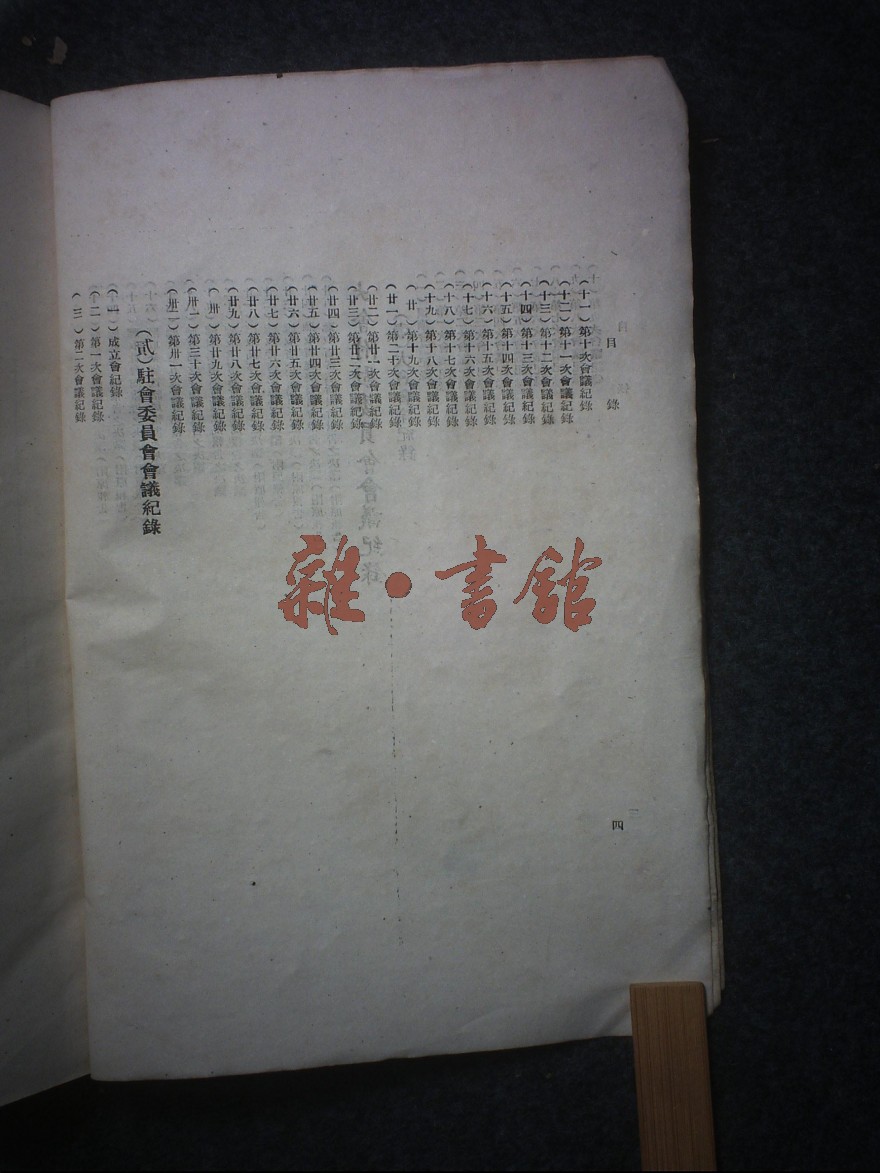 目錄
四
（十一）第十次會議紀錄
（十二）第十一次會議紀錄
（十三）第十二次會議紀錄
（十四）第十三次會議紀錄
（十五）第十四次會議紀錄
（十六）第十五次會議紀錄
（十七）第十六次會議紀錄
（十八）第十七次會議紀錄
（十九）第十八次會議紀錄
（廿）第十九次會議紀錄
（廿一）第二十次會議紀錄
（廿二）第廿一次會議紀錄
（廿三）第廿二次會議紀錄
（廿四）第廿三次會議紀錄
（廿五）第廿四次會議紀錄
（廿六）第廿五次會議紀錄
（廿七）第廿六次會議紀錄
（廿八）第廿七次會議紀錄
（廿九）第廿八次會議紀錄
（卅）第廿九次會議紀錄
（卅一）第三十次會議紀錄
（卅二）第卅一次會議紀錄
（貳）駐會委員會會議紀錄
（一）成立會紀錄
（二）第一次會議紀錄
（三）第二次會議紀錄
雜·書館